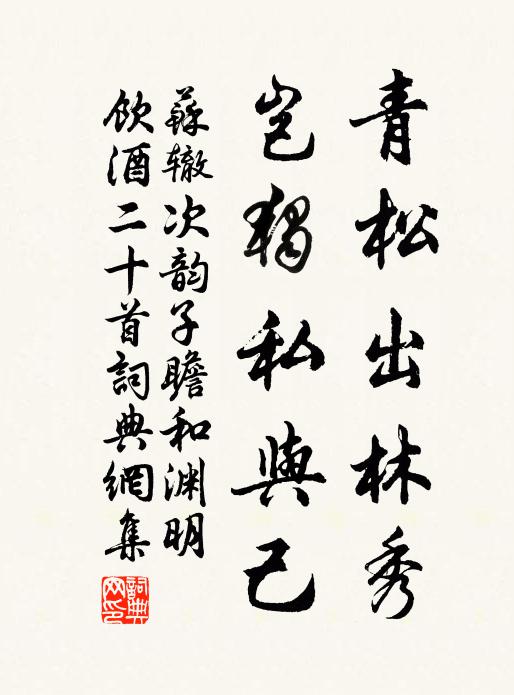 青松出林秀
豈獨私與己
蘇轍次韵子瞻和渊明
飲酒二十首詞典網集
詞典
网印